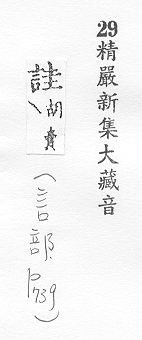 29精嚴新集大藏音
詿胡賣
（言部 p739）